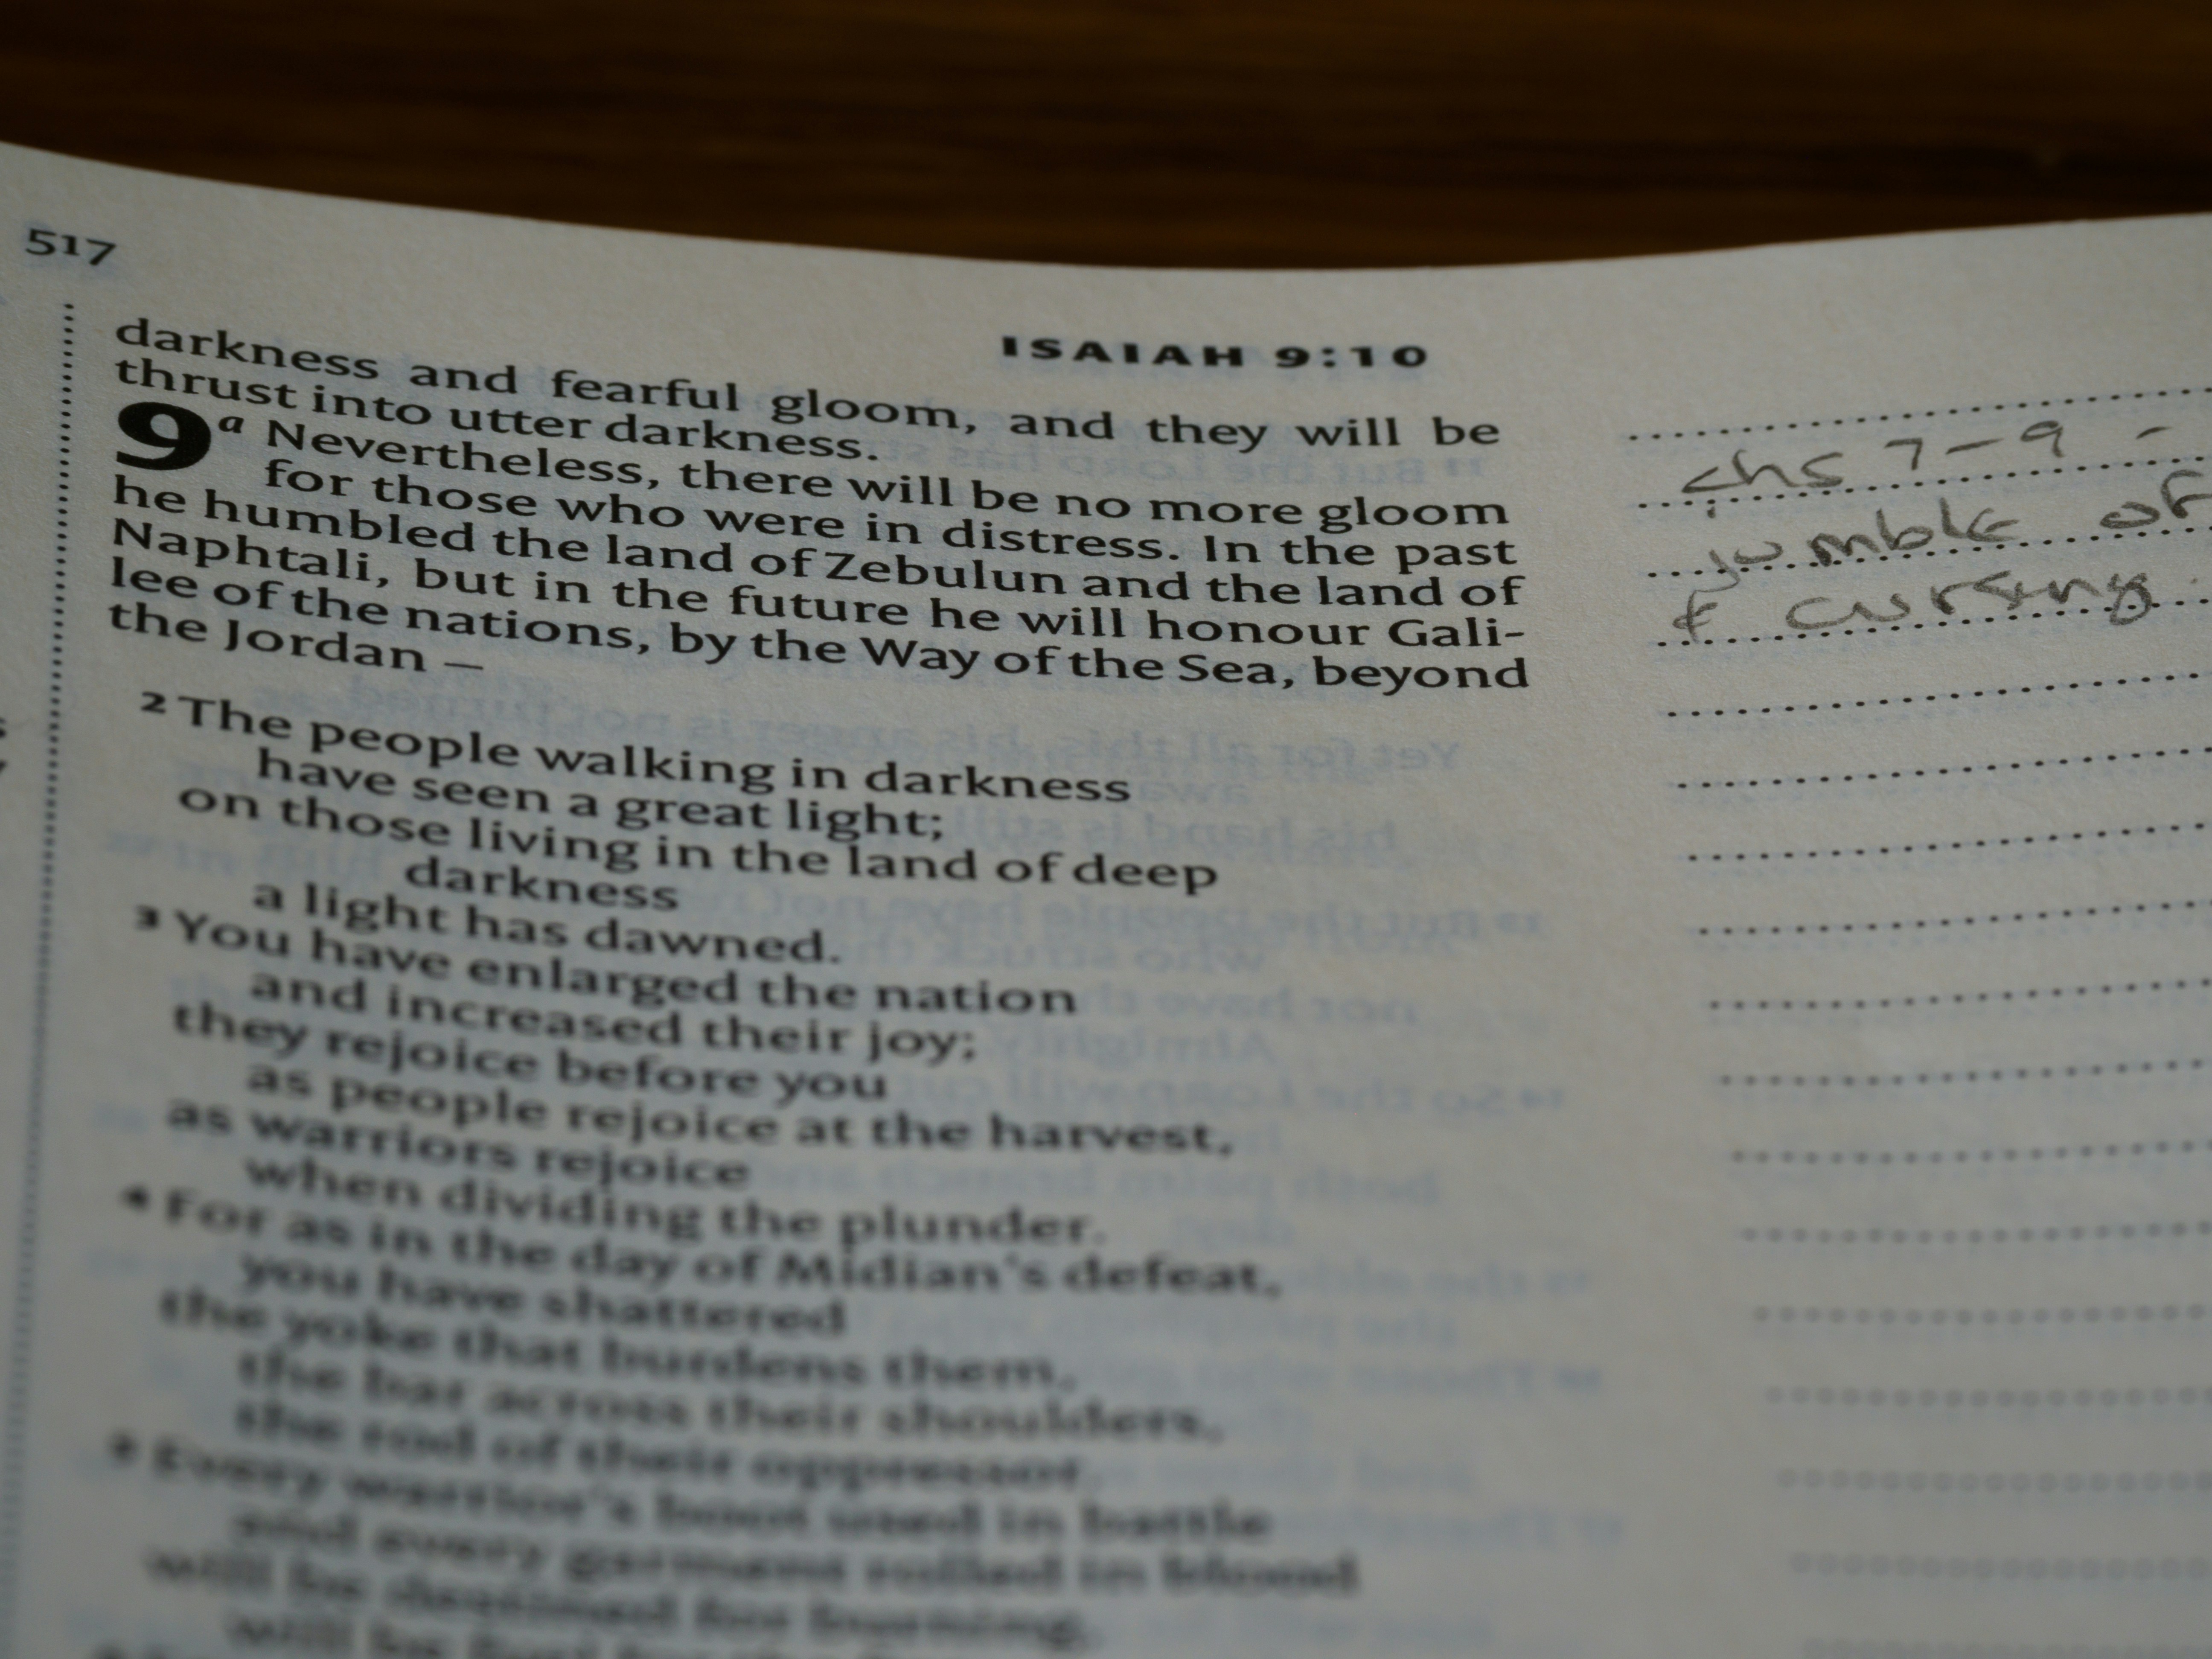 517
ISAIAH 9:10
darkness and fearful gloom, and they will be
thrust into utter darkness.
9 a Nevertheless, there will be no more gloom
for those who were in distress. In the past
he humbled the land of Zebulun and the land of
Naphtali, but in the future he will honour Gali-
lee of the nations, by the Way of the Sea, beyond
the Jordan –
2 The people walking in darkness
have seen a great light;
on those living in the land of deep
darkness
a light has dawned.
3 You have enlarged the nation
and increased their joy;
they rejoice before you
as people rejoice at the harvest,
as warriors rejoice
when dividing the plunder.
4 For as in the day of Midian's defeat,
you have shattered
the yoke that burdens them,
the bar across their shoulders,
the rod of their oppressor.
5 Every warrior's boot used in battle
and every garment rolled in blood
will be destined for burning,
chs 7-9 -
jumble of
& cursing